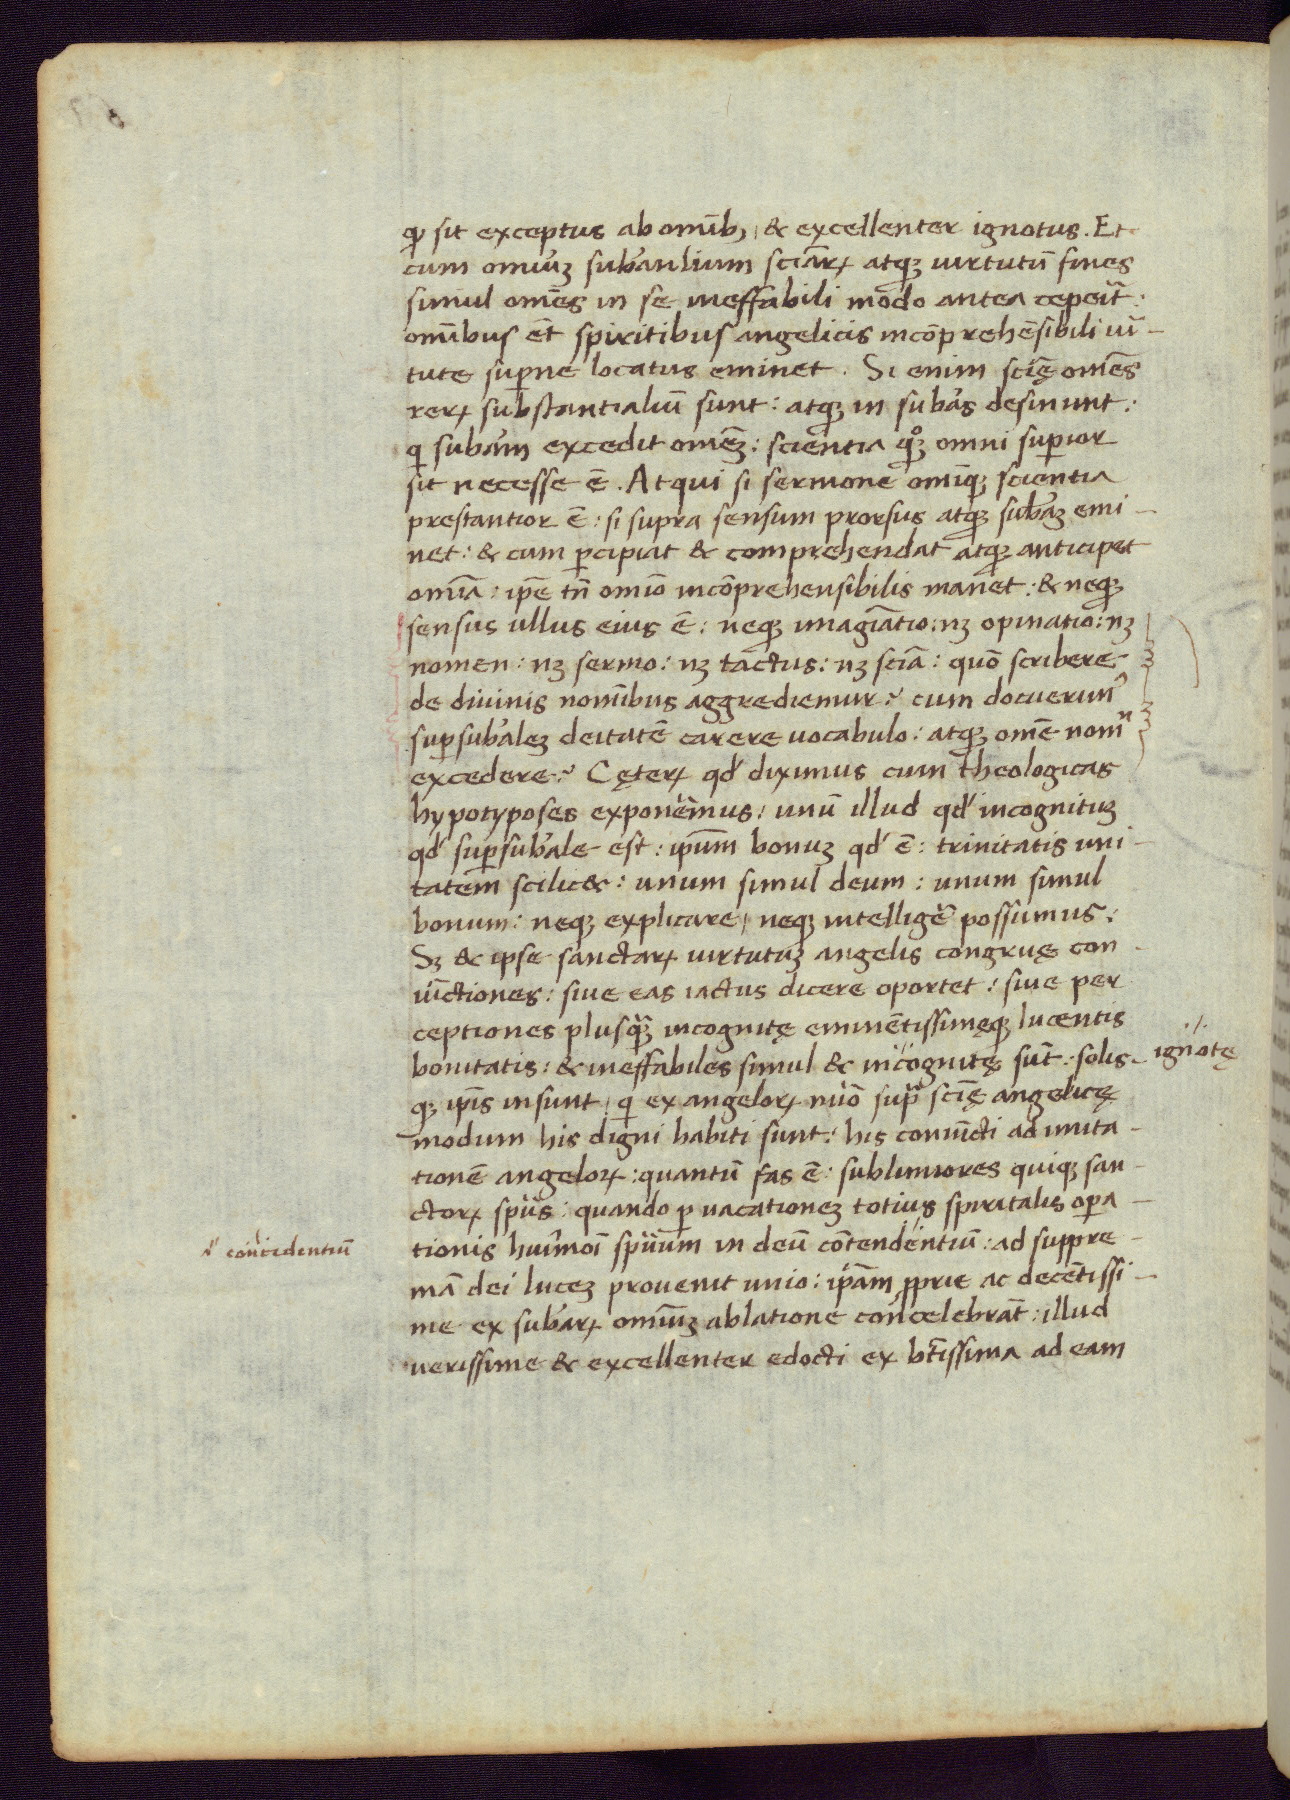 ꝙ sit exceptus ab omĩbꝫ, & excellenter ignotus. Et
cum omĩuꝫ subãntium sciãrꝝ atqꝫ uirtutũ fines
simul omẽs in se ineffabili modo antea cepeĩt:
omĩbus ẽt spiritibus angelicis incõprehẽsibili uĩ-
tute suꝑne locatus eminet. Si enim scię̃ omẽs
rerꝝ substantialiũ sunt: atqꝫ in subãs desinunt:
qͥ subãm excedit omẽꝫ: scientia qͦꝫ omni suꝑior
sit necesse ẽ. Atqui si sermone omĩqꝫ scientia
prestantior ẽ: si supra sensum prorsus atqꝫ subãꝫ emi-
net: & cum ꝑcipiat & comprehendat atqꝫ anticipet
omĩa: ip̃e tñ omĩo incõprehensibilis manet: & neqꝫ
sensus ullus eius ẽ: neqꝫ imagiãtio: nꝫ opinatio: nꝫ
nomen: nꝫ sermo: nꝫ tactus: nꝫ sciã: quõ scribere
de diuinis nomĩbus aggrediemur? cum docuerim᷒
suꝑsubãleꝫ deitatẽ carere uocabulo: atqꝫ omẽ nomͤⁿ
excedere? Cęterꝝ qd́ diximus cum theologicas
hypotyposes exponẽmus: unũ illud qd́ incognituꝫ
qd́ suꝑsubãle est: ip̃um bonuꝫ qd́ ẽ: trinitatis uni-
tatem scilic&: unum simul deum: unum simul
bonum: neqꝫ explicare, neqꝫ intelligẽ possumus:
Sꝫ & ipse sanctarꝝ uirtutuꝫ angelis congruę con-
iũctiones: siue eas iactus dicere oportet: siue per
ceptiones plusq̃ꝫ incognitę eminẽtissimęqꝫ lucentis
bonitatis: & ineffabiles simul & incognitę sũt: solis-
qꝫ ip̃is insunt, qͥ ex angelorꝝ nũo sup̃ scię̃ angelicę
modum his digni habiti sunt: his coniũcti ad imita-
tionẽ angelorꝝ: quantũ fas ẽ: sublimiores quiqꝫ san-
ctorꝝ spũs: quando ꝑ uacationeꝫ totius spiritalis oꝑa-
tionis huĩmõi spũum in deũ cõtendentiũ: ad suppre-
mã dei luceꝫ prouenit unio: ip̃am ꝓprie ac decẽtissi-
me ex subãrꝝ omĩuꝫ ablatione concelebrãt: illud
uerissime & excellenter edocti ex btĩssima ad eam
·/· ignotę
ał conĩcidentiũ